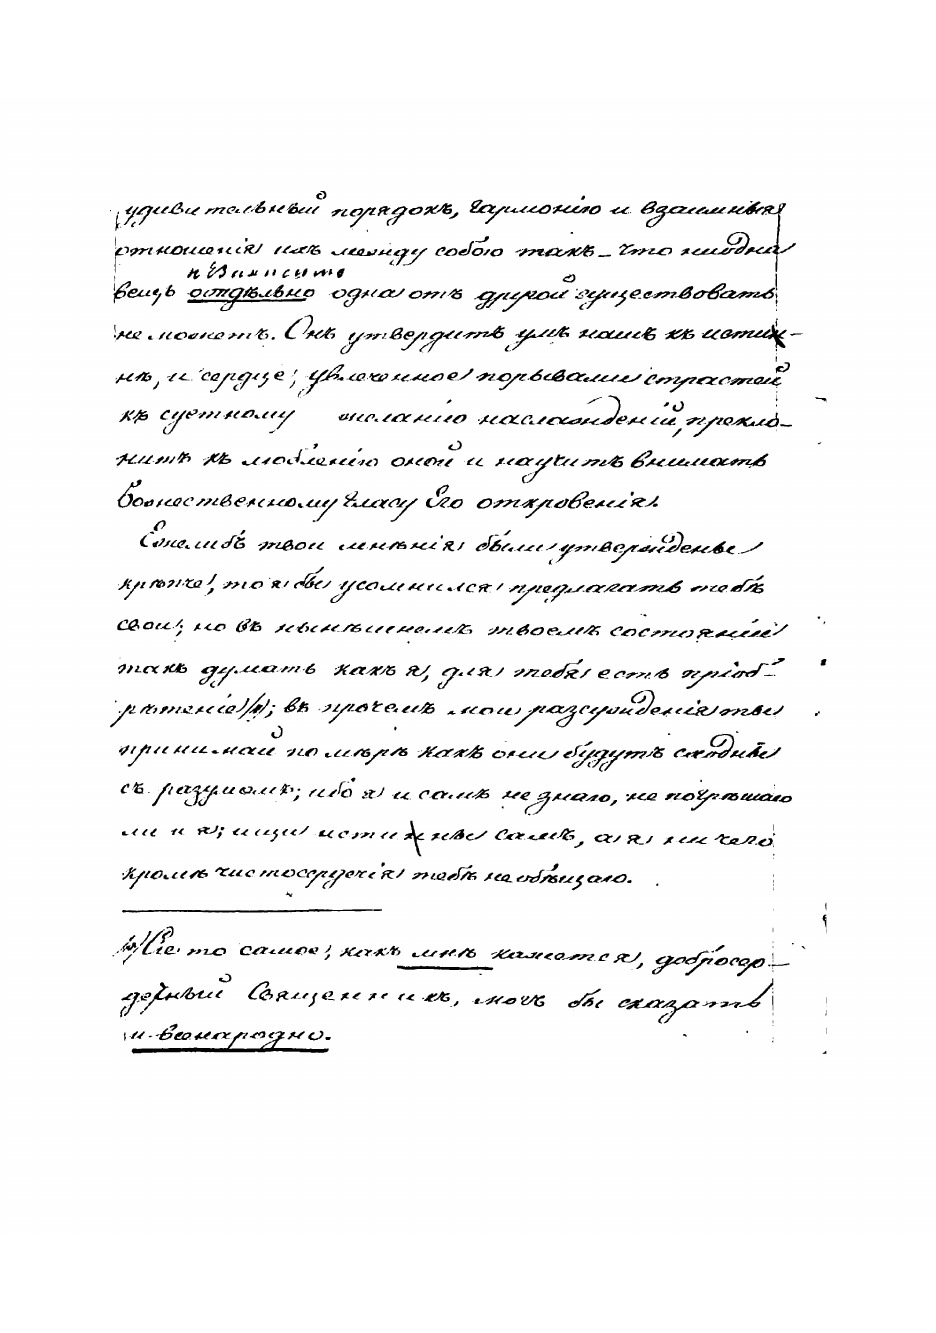 удивительный порядокъ, гармонію и взаимныя
отношенія ихъ между собою такъ-что ни одна
вещь отдѣльно одна отъ другой существовать
не можетъ. Онъ утвердитъ умъ нашъ въ истин-
нѣ, и сердце, увлеченное порывами страстей
къ суетному желанію наслажденій, прекло-
нитъ къ люблению оной и научитъ внимать
Божественному гласу Его откровенія.
Ежелибъ твои мнѣнія были утверждены
крѣпче, то я бы усомнился предлагать тебѣ
свои; но въ нынѣшнемъ твоемъ состояніи
такъ думать какъ я, для тебя есть пріоб-
рѣтеніе; въ прочемъ мои разсужденія ты
принимай по мѣрѣ какъ они будутъ сходны
съ разумомъ; ибо я и самъ не знаю, не погрѣшаю
ли и я; ищи истинны самъ, а я ничего
кромѣ чистосердечія тебѣ не обѣщаю.
Сіе то самое, какъ мнѣ кажется, добросер-
дечный Священникъ, могъ бы сказать
и всенародно.